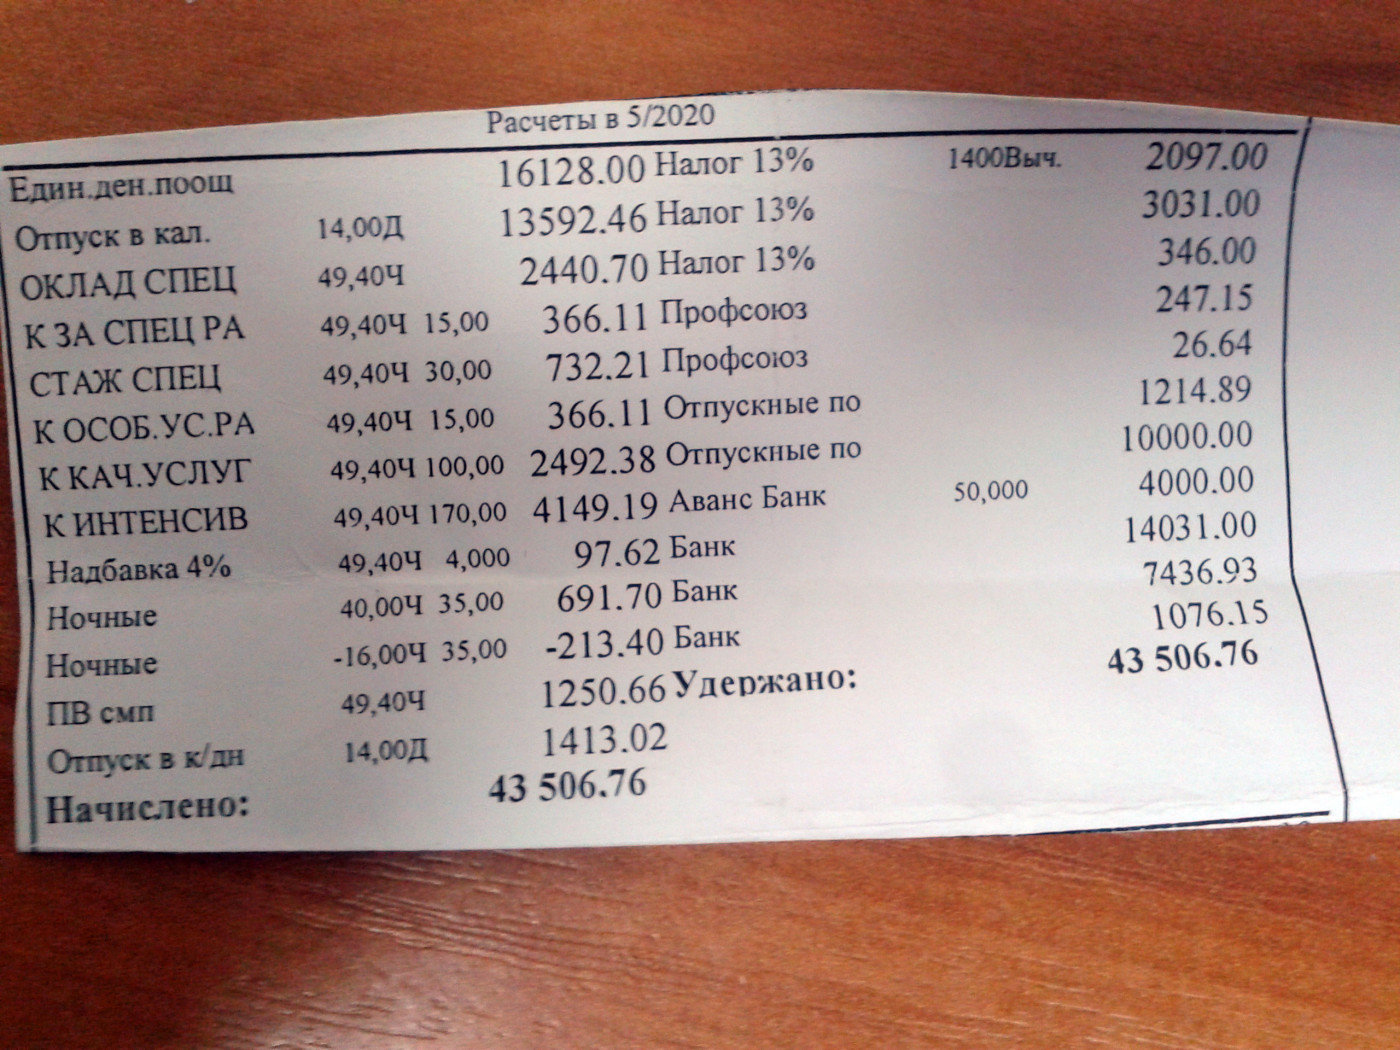 Расчеты в 5/2020
Един.ден.поощ 16128.00 Налог 13% 1400Выч. 2097.00
Отпуск в кал. 14,00Д 13592.46 Налог 13% 3031.00
ОКЛАД СПЕЦ 49,40Ч 2440.70 Налог 13% 346.00
К ЗА СПЕЦ РА 49,40Ч 15,00 366.11 Профсоюз 247.15
СТАЖ СПЕЦ 49,40Ч 30,00 732.21 Профсоюз 26.64
К ОСОБ.УС.РА 49,40Ч 15,00 366.11 Отпускные по 1214.89
К КАЧ.УСЛУГ 49,40Ч 100,00 2492.38 Отпускные по 10000.00
К ИНТЕНСИВ 49,40Ч 170,00 4149.19 Аванс Банк 50,000 4000.00
Надбавка 4% 49,40Ч 4,000 97.62 Банк 14031.00
Ночные 40,00Ч 35,00 691.70 Банк 7436.93
Ночные -16,00Ч 35,00 -213.40 Банк 1076.15
ПВ смп 49,40Ч 1250.66 Удержано: 43 506.76
Отпуск в к/дн 14,00Д 1413.02
Начислено: 43 506.76